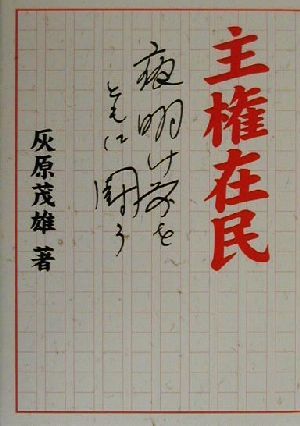 主権在民
夜明け前を
ともに闘う
灰原茂雄 著